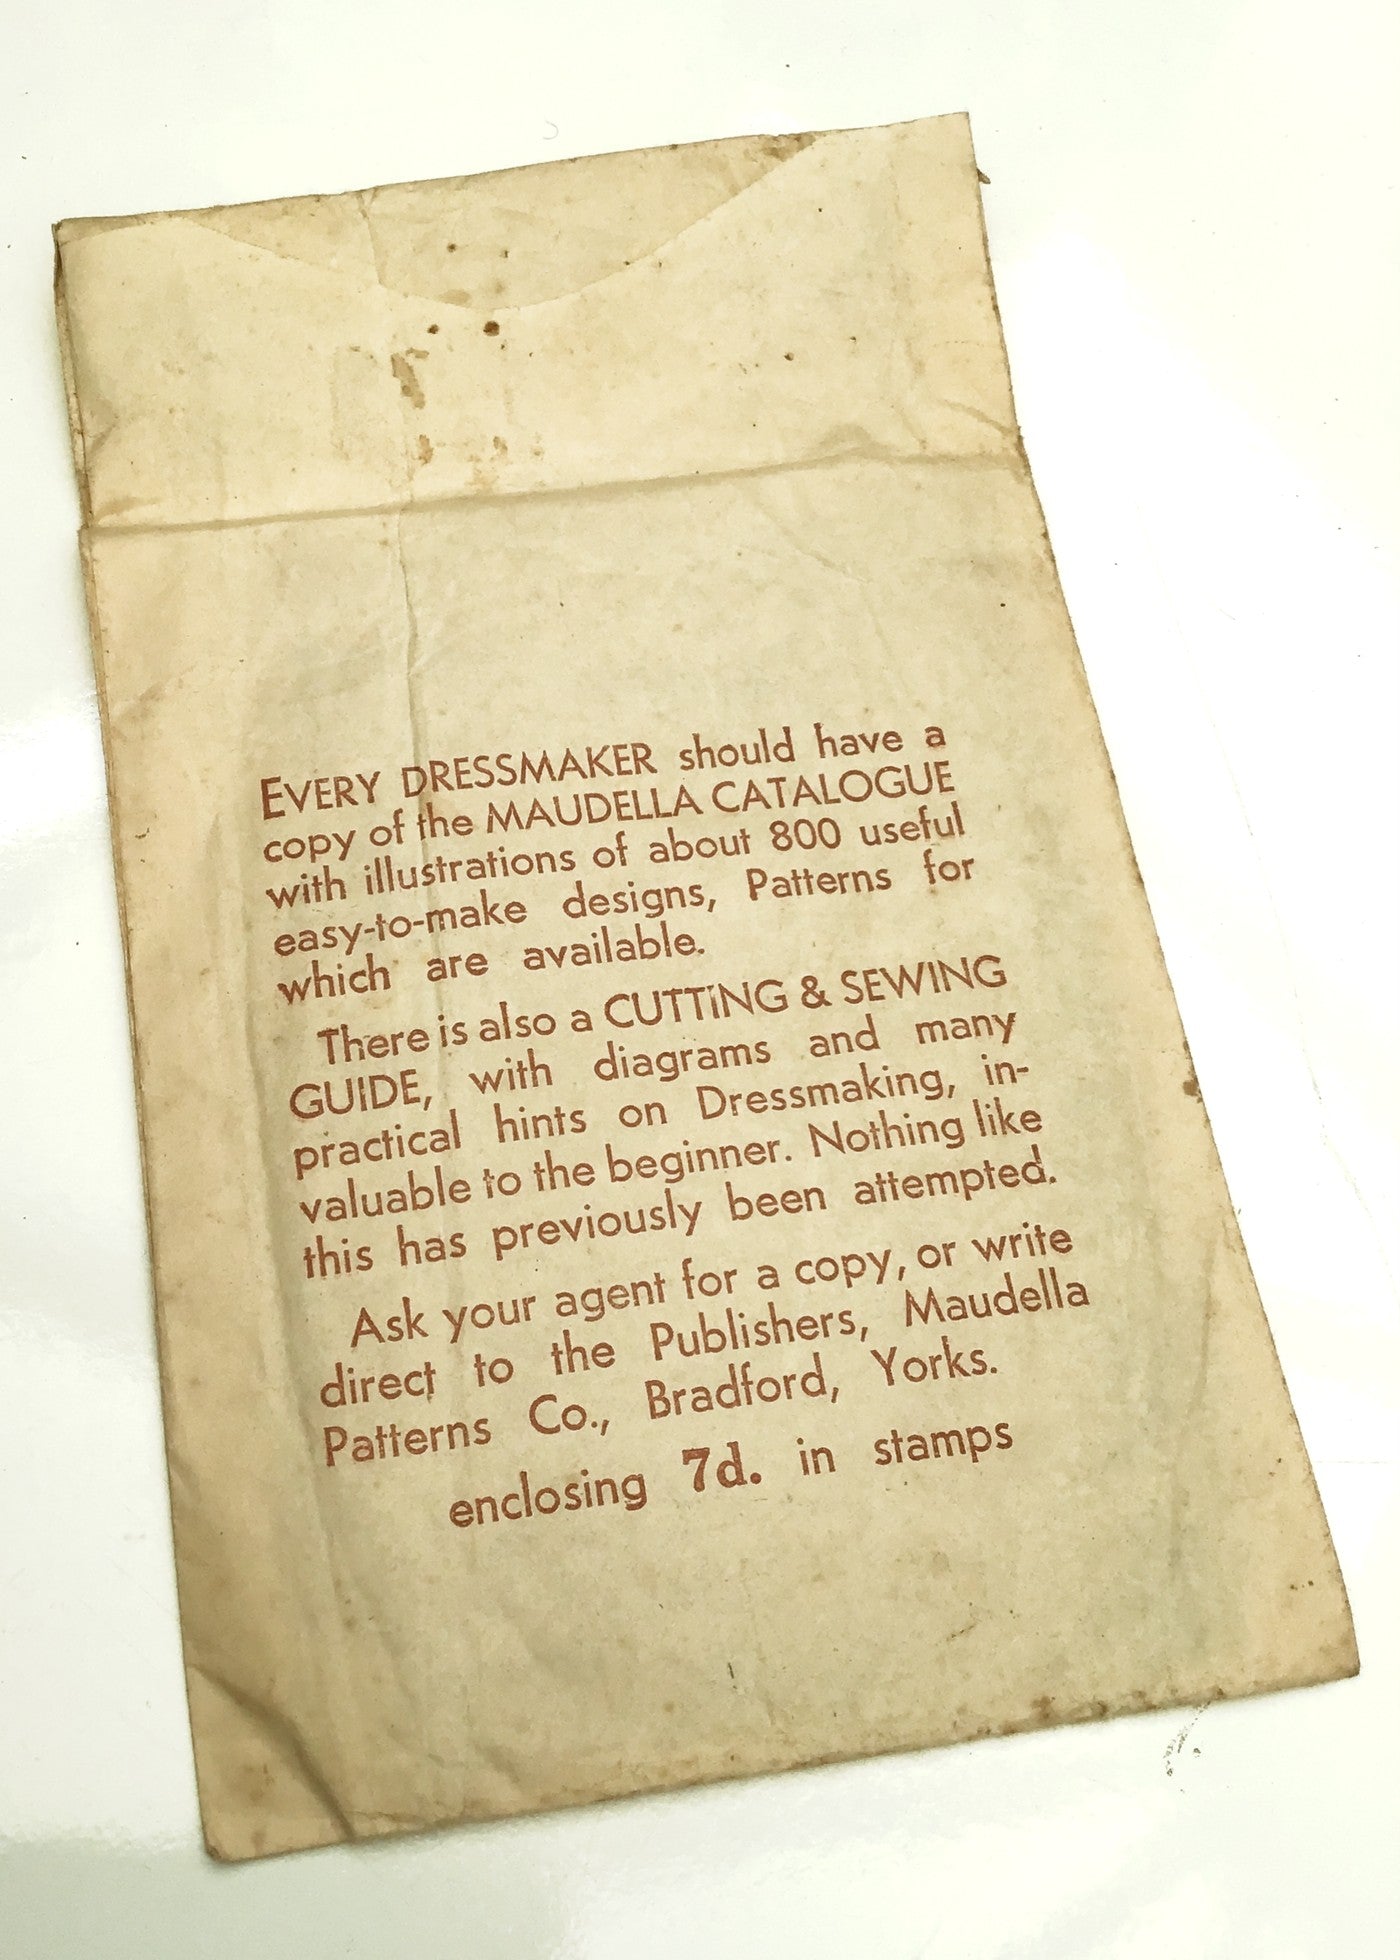 EVERY DRESSMAKER should have a
copy of the MAUDELLA CATALOGUE
with illustrations of about 800 useful
easy-to-make designs, Patterns for
which are available.
There is also a CUTTING & SEWING
GUIDE, with diagrams and many
practical hints on Dressmaking, in-
valuable to the beginner. Nothing like
this has previously been attempted.
Ask your agent for a copy, or write
direct to the Publishers, Maudella
Patterns Co., Bradford, Yorks.
enclosing 7d. in stamps